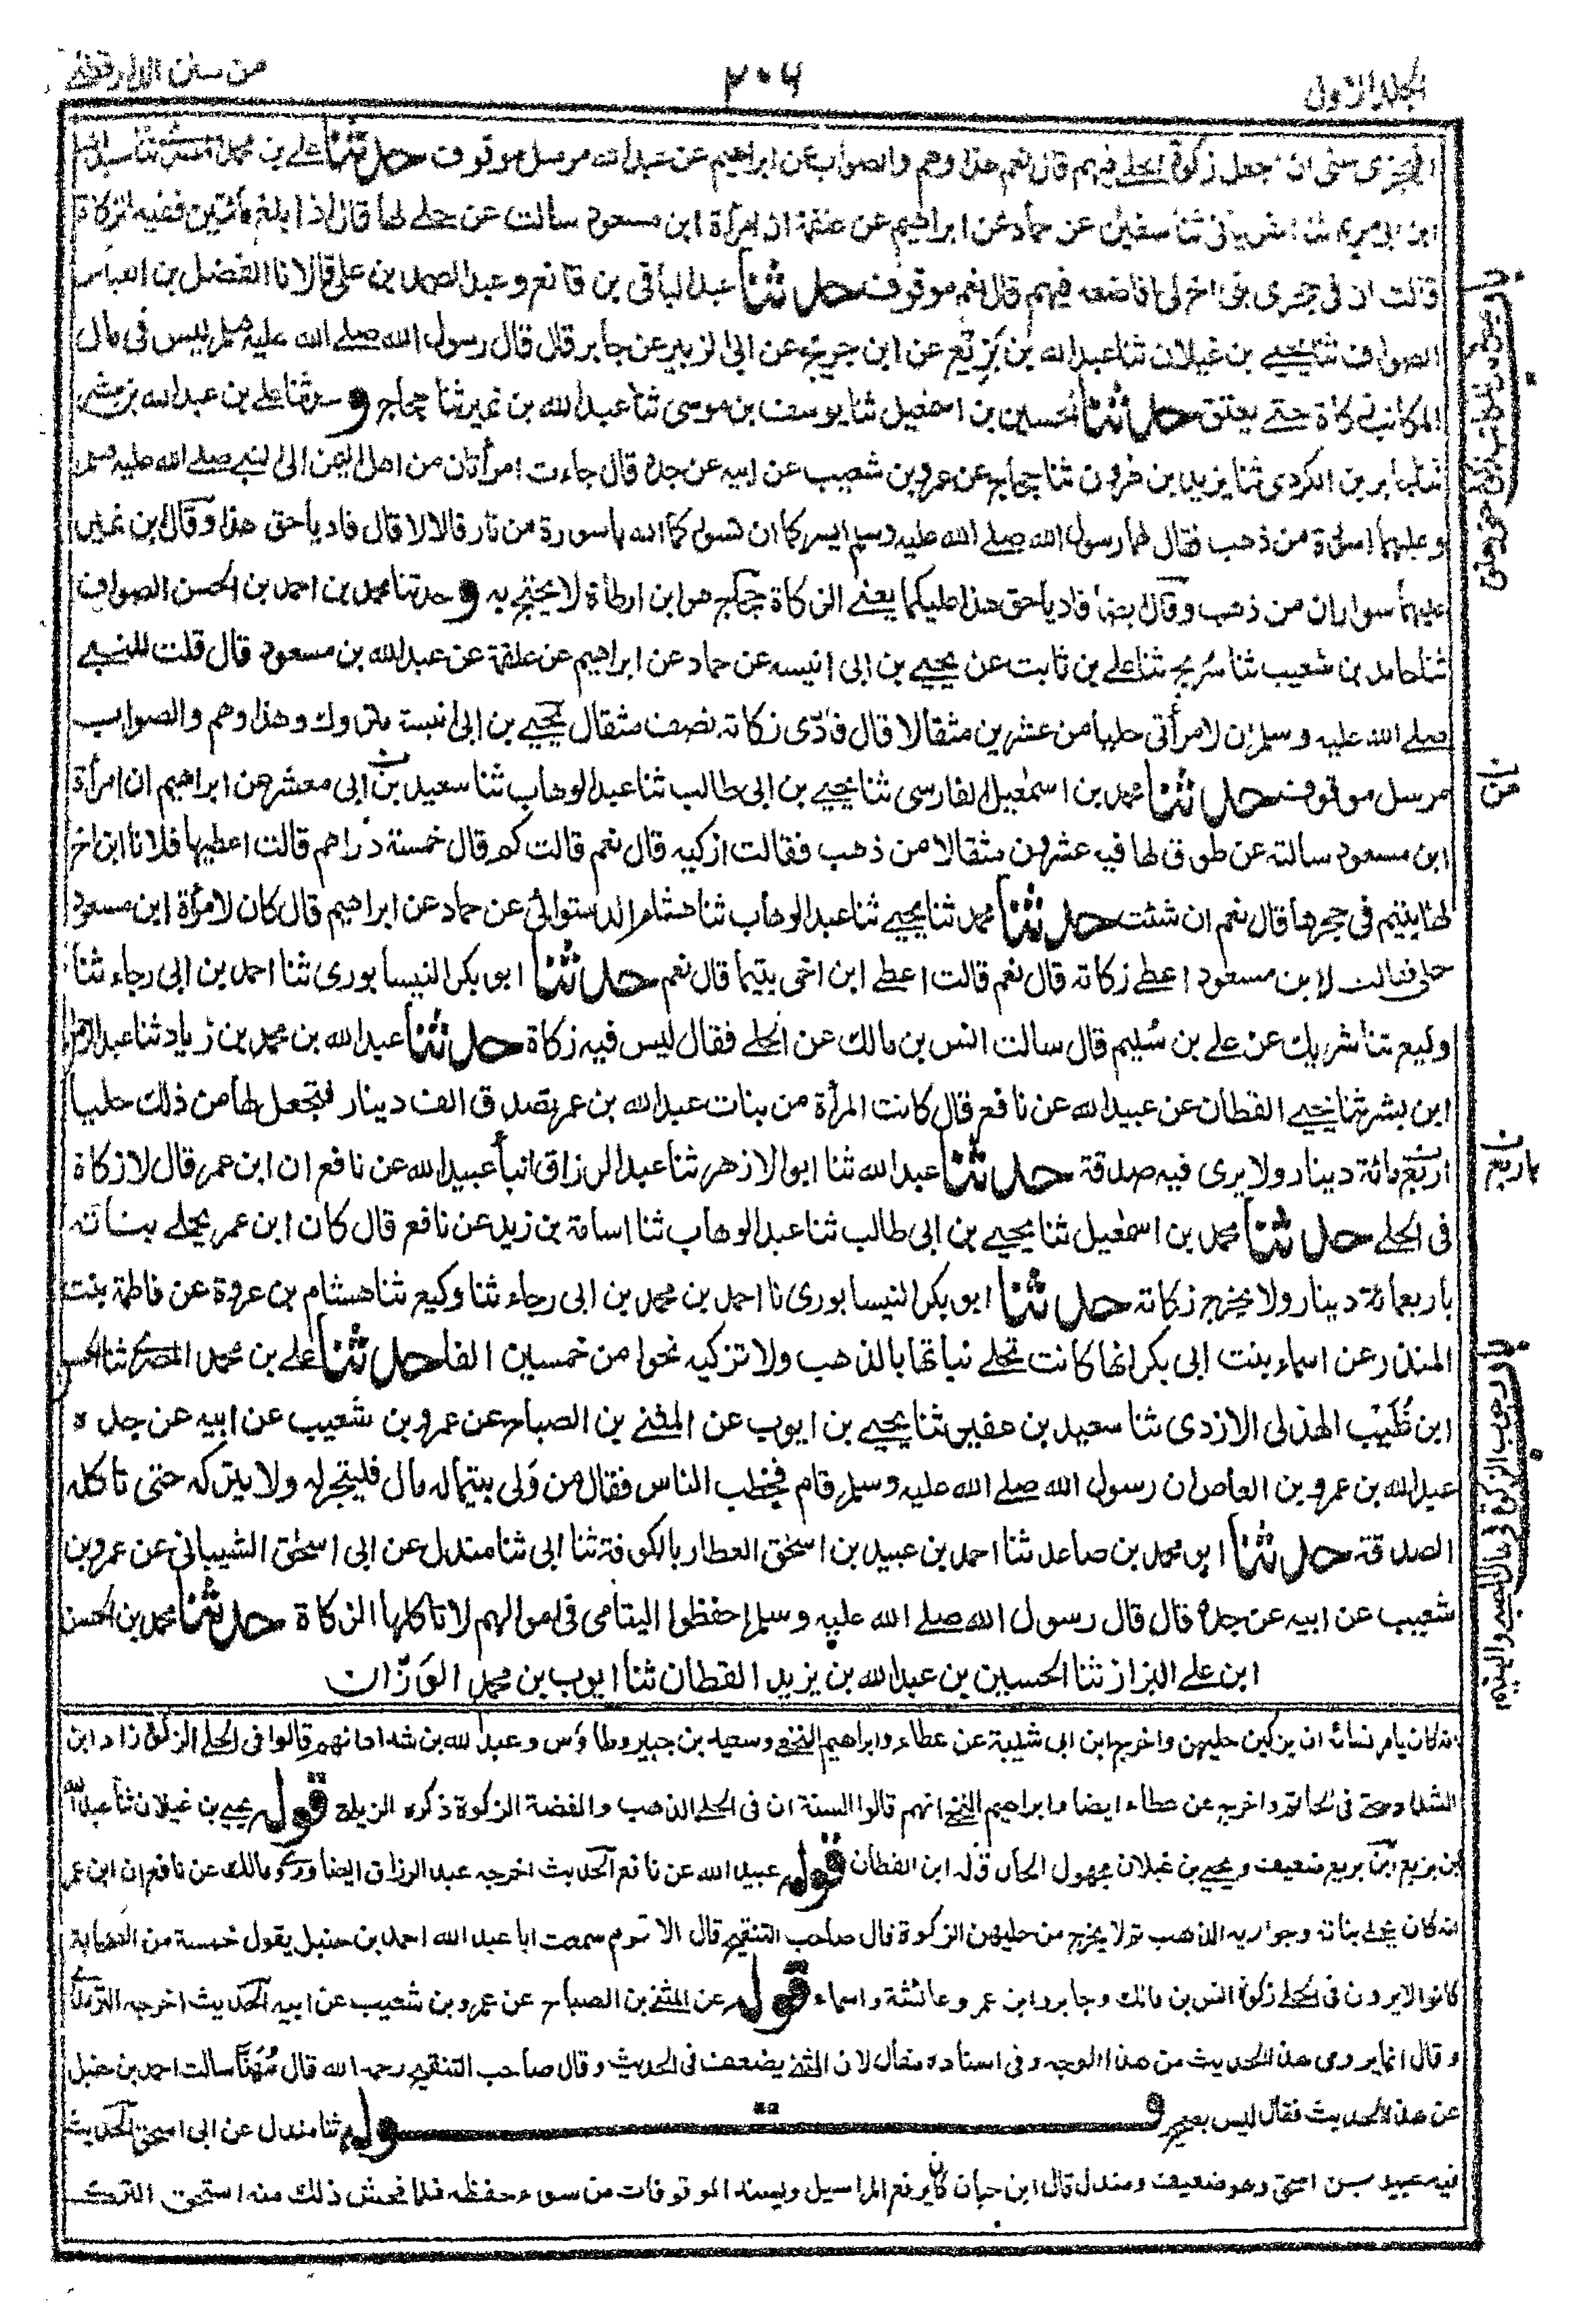 المجلد الاول
٢٠٦
من سنن الدارقطنی
ان اجعل زكوة الحلے فيهم قال نعم هذا وهم والصواب عن ابراهيم عن عبد الله مرسل موقوف حدثنا علے بن محمد المصری ثنا عبد الله
ابن ابی مريم ثنا الفريابی ثنا سفين عن حماد عن ابراهيم عن علقمة ان امرأة ابن مسعود سالت عن حلے لها قال اذا بلغ مأتين ففيه الزكاة
قالت ان فی حجری بنی اخ لی افاضعه فيهم قال نعم موقوف حدثنا عبد الباقی بن قانع وعبد الصمد بن علی قالا نا الفضل بن العباس
الصواف ثنا يحيے بن غيلان ثنا عبد الله بن بزيع عن ابن جريج عن ابی الزبير عن جابر قال قال رسول الله صلے الله عليه وسلم ليس فی مال
المكاتب زكاة حتے يعتق حدثنا الحسين بن اسمعيل ثنا يوسف بن موسی ثنا عبد الله بن نمير ثنا حجاج وحدثنا علے بن عبد الله بن مبشر
ثنا جابر بن الكردی ثنا يزيد بن هرون ثنا حجاج عن عمرو بن شعيب عن ابيه عن جده قال جاءت امرأتان من اهل اليمن الی النبے صلے الله عليه وسلم
وعليهما اسورة من ذهب فقال لهما رسول الله صلے الله عليه وسلم ايسركما ان يسوركما الله باسورة من نار قالا لا قال فاديا حق هذا وقال ابن نمير
عليهما سواران من ذهب وقال ايضا فاديا حق هذا عليكما يعنے الزكاة حجاج هو ابن ارطاة لا يحتج به وحدثنا محمد بن احمد بن الحسن الصواف
ثنا حامد بن شعيب ثنا سُريج ثنا علے بن ثابت عن يحيے بن ابی انيسه عن حماد عن ابراهيم عن علقمة عن عبد الله بن مسعود قال قلت للنبے
صلے الله عليه وسلم ان لامرأتی حليا من عشرين مثقالا قال فأدّی زكاته نصف مثقال يحيے بن ابی انيسة متروك وهذا وهم والصواب
مرسل موقوف حدثنا محمد بن اسمعيل الفارسی ثنا يحيے بن ابی طالب ثنا عبد الوهاب ثنا سعيد بن ابی معشر عن ابراهيم ان امرأة
ابن مسعود سالته عن طوق لها فيه عشرون مثقالا من ذهب فقالت ازكيه قال نعم قالت كم قال خمسة دراهم قالت اعطيها فلانا ابن اخ
لها يتيم فی حجرها قال نعم ان شئت حدثنا محمد ثنا يحيے ثنا عبد الوهاب ثنا هشام الدستوائی عن حماد عن ابراهيم قال كان لامرأة ابن مسعود
حلی فقالت لابن مسعود اعطے زكاته قال نعم قالت اعطے ابن اخی يتيما قال نعم حدثنا ابو بكر النيسابوری ثنا احمد بن ابی رجاء ثنا
وكيع ثنا شريك عن علے بن سُليم قال سالت انس بن مالك عن الحلے فقال ليس فيه زكاة حدثنا عبد الله بن محمد بن زياد ثنا عبد الرحمن
ابن بشر ثنا يحيے القطان عن عبيد الله عن نافع قال كانت المرأة من بنات عبد الله بن عمر تصدق الف دينار فتجعل لها من ذلك حليا
اربع مائة دينار ولا يری فيه صدقة حدثنا عبد الله ثنا ابو الازهر ثنا عبد الرزاق انبأ عبيد الله عن نافع ان ابن عمر قال لا زكاة
فی الحلے حدثنا محمد بن اسمعيل ثنا يحيے بن ابی طالب ثنا عبد الوهاب ثنا اسامة بن زيد عن نافع قال كان ابن عمر يحلے بناته
باربعمائة دينار ولا يخرج زكاته حدثنا ابو بكر النيسابوری نا احمد بن محمد بن ابی رجاء ثنا وكيع ثنا هشام بن عروة عن فاطمة بنت
المنذر عن اسماء بنت ابی بكر انها كانت تحلے بناتها بالذهب ولا تزكيه نحوا من خمسين الفا حدثنا علے بن محمد المصری ثنا الحسن
ابن غُليب الازدی ثنا سعيد بن عفير ثنا يحيے بن ايوب عن المثنے بن الصباح عن عمرو بن شعيب عن ابيه عن جده
عبد الله بن عمرو بن العاص ان رسول الله صلے الله عليه وسلم قام فخطب الناس فقال من وَلی يتيما له مال فليتجر له ولا يتركه حتی تاكله
الصدقة حدثنا ابو محمد بن صاعد ثنا احمد بن عبيد بن اسحٰق العطار بالكوفة ثنا ابی ثنا مندل عن ابی اسحٰق الشيبانی عن عمرو بن
شعيب عن ابيه عن جده قال قال رسول الله صلے الله عليه وسلم احفظوا اليتامی فی اموالهم لا تاكلها الزكاة حدثنا محمد بن الحسن
ابن علے البزاز ثنا الحسين بن عبد الله بن يزيد القطان ثنا ايوب بن محمد الوَزّان
انه كان يامر نسائه ان يزكين حليهن واخرج ابن ابی شيبة عن عطاء وابراهيم النخعے وسعيد بن جبير وطاؤس وعبد الله بن شداد انهم قالوا فی الحلے الزكوة زاد ابن
شداد حتے فی الخاتم واخرج عن عطاء ايضا وابراهيم النخعے انهم قالوا السنة ان فی الحلے الذهب والفضة الزكوة ذكره الزيلعے قوله يحيے بن غيلان ثنا عبد الله
بن بزيع ابن بزيع ضعيف ويحيے بن غيلان مجهول الحال قاله ابن القطان قوله عبيد الله عن نافع الحديث اخرجه عبد الرزاق ايضا وروی مالك عن نافع ان ابن عمر
انه كان يحلے بناته وجواريه الذهب ثم لا يخرج من حليهن الزكوة قال صاحب التنقيح قال الاثرم سمعت ابا عبد الله احمد بن حنبل يقول خمسة من الصحابة
كانوا لا يرون فی الحلے زكوة انس بن مالك وجابر وابن عمر وعائشة واسماء قوله عن المثنے بن الصباح عن عمرو بن شعيب عن ابيه الحديث اخرجه الترمذی
وقال انما يروی هذا الحديث من هذا الوجه وفی اسناده مقال لان المثنے يضعف فی الحديث وقال صاحب التنقيح رحمه الله قال مُهنّا سالت احمد بن حنبل
عن هذا الحديث فقال ليس بصحيح قوله ثنا مندل عن ابی اسحٰق الحديث
فيه عبيد بن اسحٰق وهو ضعيف ومندل قال ابن حبان كان يرفع المراسيل ويسند الموقوفات من سوء حفظه فلما فحش ذلك منه استحق الترك
باربع
باب وجوب الزكوة فی مال الصبے واليتيم